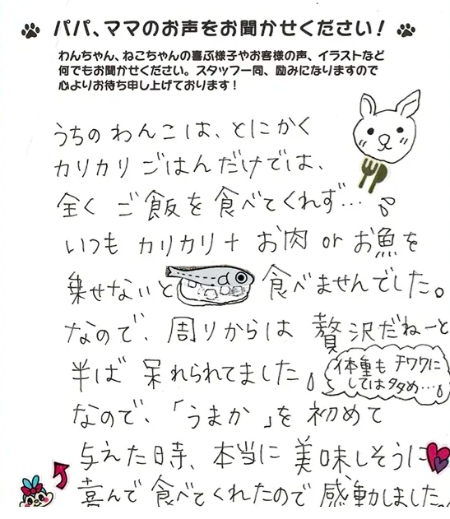 パパ、ママのお声をお聞かせください！
わんちゃん、ねこちゃんの喜ぶ様子やお客様の声、イラストなど
何でもお聞かせください。スタッフ一同、励みになりますので
心よりお待ち申し上げております！
うちの わんこは、とにかく
カリカリ ごはんだけでは、
全く ご飯を 食べてくれず…
いつも カリカリ＋ お肉 or お魚を
乗せないと 食べませんでした。
なので、周りからは 贅沢だねーと
半ば 呆れられてました
体重も チワワに
しては タタめ…
なので、「うまか」を 初めて
与えた日時、本当に 美味しそうに
喜んで 食べてくれたので 感動しました。